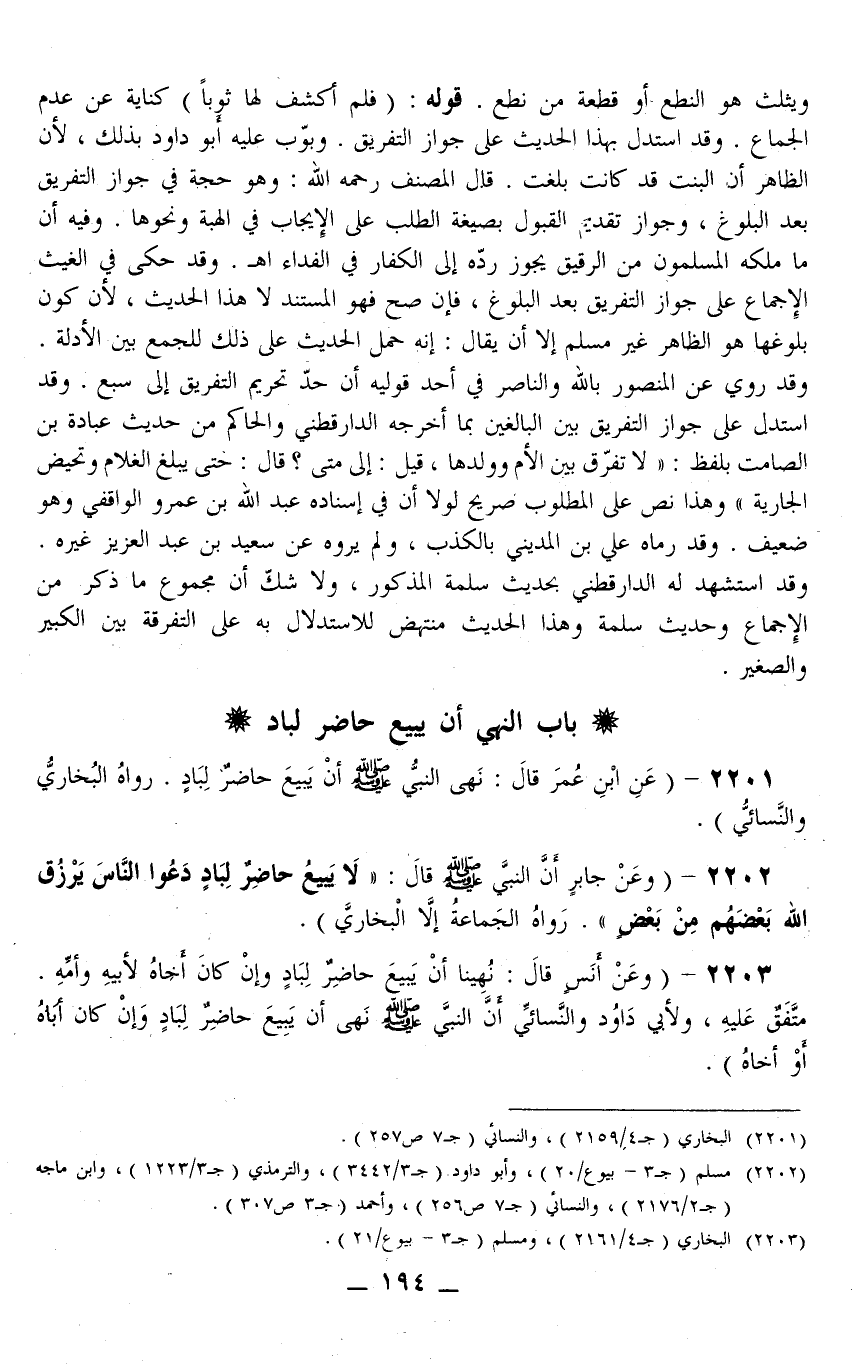 ويثلث هو النطع أو قطعة من نطع . قوله : ( فلم أكشف لها ثوباً ) كناية عن عدم
الجماع . وقد استدل بهذا الحديث على جواز التفريق . وبوّب عليه أبو داود بذلك ، لأن
الظاهر أن البنت قد كانت بلغت . قال المصنف رحمه الله : وهو حجة في جواز التفريق
بعد البلوغ ، وجواز تقديم القبول بصيغة الطلب على الإيجاب في الهبة ونحوها . وفيه أن
ما ملكه المسلمون من الرقيق يجوز ردّه إلى الكفار في الفداء اهـ . وقد حكى في الغيث
الإجماع على جواز التفريق بعد البلوغ ، فإن صح فهو المستند لا هذا الحديث ، لأن كون
بلوغها هو الظاهر غير مسلم إلا أن يقال : إنه حمل الحديث على ذلك للجمع بين الأدلة .
وقد روي عن المنصور بالله والناصر في أحد قوليه أن حدّ تحريم التفريق إلى سبع . وقد
استدل على جواز التفريق بين البالغين بما أخرجه الدارقطني والحاكم من حديث عبادة بن
الصامت بلفظ : « لا تفرّق بين الأم وولدها ، قيل : إلى متى ؟ قال : حتى يبلغ الغلام وتحيض
الجارية » وهذا نص على المطلوب صريح لولا أن في إسناده عبد الله بن عمرو الواقفي وهو
ضعيف . وقد رماه علي بن المديني بالكذب ، ولم يروه عن سعيد بن عبد العزيز غيره .
وقد استشهد له الدارقطني بحديث سلمة المذكور ، ولا شكّ أن مجموع ما ذكر من
الإجماع وحديث سلمة وهذا الحديث منتهض للاستدلال به على التفرقة بين الكبير
والصغير .
باب النهي أن يبيع حاضر لباد
٢٢٠١ – ( عَنِ ابْنِ عُمرَ قالَ : نَهى النبيُّ ﷺ أنْ يَبيعَ حاضرٌ لِبَادٍ . رواهُ البُخاريُّ
والنَّسائيُّ ) .
٢٢٠٢ – ( وعَنْ جابرٍ أَنَّ النبيَّ ﷺ قالَ : « لَا يَبيعُ حاضِرٌ لِبَادٍ دَعُوا النَّاسَ يَرْزُق
الله بَعْضَهُم مِنْ بَعْضٍ » . رَواهُ الجَماعةُ إلَّا الْبخاريَّ ) .
٢٢٠٣ – ( وعَنْ أَنَسٍ قالَ : نُهِينا أنْ يَبيعَ حاضِرٌ لِبَادٍ وإنْ كانَ أَخاهُ لأبيهِ وأمِّهِ .
متَّفَقٌ عَليهِ ، ولأبي دَاوُد والنَّسائيِّ أَنَّ النبيَّ ﷺ نَهى أن يَبِيعَ حاضِرٌ لِبَادٍ وَإنْ كان أبَاهُ
أَوْ أخاهُ ) .
(٢٢٠١) البخاري ( جـ٢١٥٩/٤ ) ، والنسائي ( جـ٧ ص٢٥٧ ) .
(٢٢٠٢) مسلم ( جـ٣ – بيوع/٢٠ ) ، وأبو داود ( جـ٣٤٤٢/٣ ) ، والترمذي ( جـ١٢٢٣/٣ ) ، وابن ماجه
( جـ٢١٧٦/٢ ) ، والنسائي ( جـ٧ ص٢٥٦ ) ، وأحمد ( جـ٣ ص٣٠٧ ) .
(٢٢٠٣) البخاري ( جـ٢١٦١/٤ ) ، ومسلم ( جـ٣ – بيوع/٢١ ) .
ــ ١٩٤ ــ